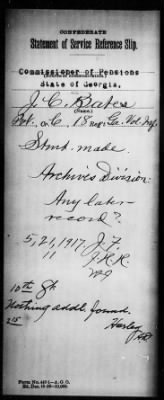 CONFEDERATE
Statement of Service Reference Slip.
Commissioner of Pensions
State of Georgia.
J. C. Bates
Pvt. Co. C, 18 reg. Ga. Vol. Inf.
Stmt. made.
Archives Division:
Any later
record?
5/21, 1917. J. F.
11 J.H.K.
10th St.
Nothing addl. found.
215
Form No.